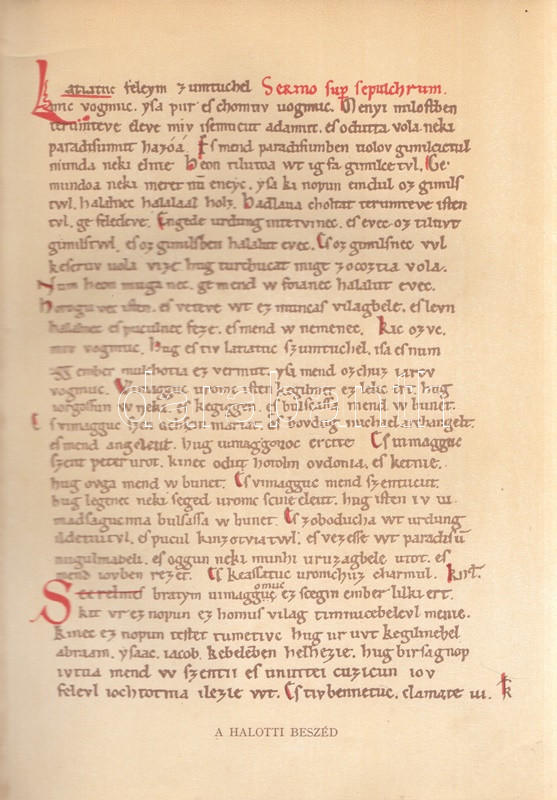 Latiatuc feleym zumtuchel Sermo sup sepulchrum.
mic vogmuc. ysa pur es chomuv uogmuc. Menyi milostben
terumteve eleve miv isemucut adamut. es odutta vola neki
paradisumut hazóá. Es mend paradisumben uolov gimilcictul
munda neki elnie. Heon tilutoa wt ig fa gimilcetvl. Ge
mundoa neki meret nū eneyc. ysa ki nopun emdul oz gimils
twl. halalnec halalaal holz. Hadlaua choltat terumteve isten
tvl. ge feledeve. Engede urdung intetvinec. es evec oz tiluvt
gimilstwl. es oz gimilsben halalut evec. Es oz gimilsnec vvl
keseruv uola vize. hug turchucat mige zocoztia vola.
Num heon muga nec. ge mend w foianec halalut evec.
Horogu vec isten. es veteve wt ez muncas vilagbele. es levn
halalnec es puculnec feze. es mend w nemenec. Kic ozvc.
miv vogmuc. Hug es tiv latiatuc szumtuchel. isa es num
igg ember mulhotia ez vermut. ysa mend ozchuz iarov
vogmuc. Wimagguc uromc isten kegilmet ez lelic ert. hug
iorgossun w neki. es kegiggen. es bulsassa mend w bunet.
Es vimagguc szen achscin mariat. es bovdug michael archangelt.
es mend angelcut. hug uimaggonoc erette. Es uimagguc
szent peter urot. kinec odut hotolm ovdonia. es ketnie.
hug ovga mend w bunet. Es vimagguc mend szentucut.
hug legenec neki seged uromc scine eleut. hug isten iv ui
madsaguc mia bulsassa w bunet. Es zoboducha wt urdung
ildetuitvl. es pucul kinzotviatwl. es vezesse wt paradisū
nugulmabeli. es oggun neki munhi uruzagbele utot. es
mend iovben rezet. Es keassatuc uromchuz charmul. Kirl.
Scerelmes bratym uimagguc omuc ez scegin ember lilki ert.
Kit vr ez nopun ez homus vilag timnucebelevl mente.
Kinec ez nopun testet tumetivc. hug ur uvt kegilmehel
abraam. ysaac. iacob. kebeleben helhezie. hug birsagnop
ivtua mend w szentii es unuttei cuzicun iov
felevl iochtotnia ilezie wt. Es tiv bennetuc. clamate iii. K
darabanth
A HALOTTI BESZÉD